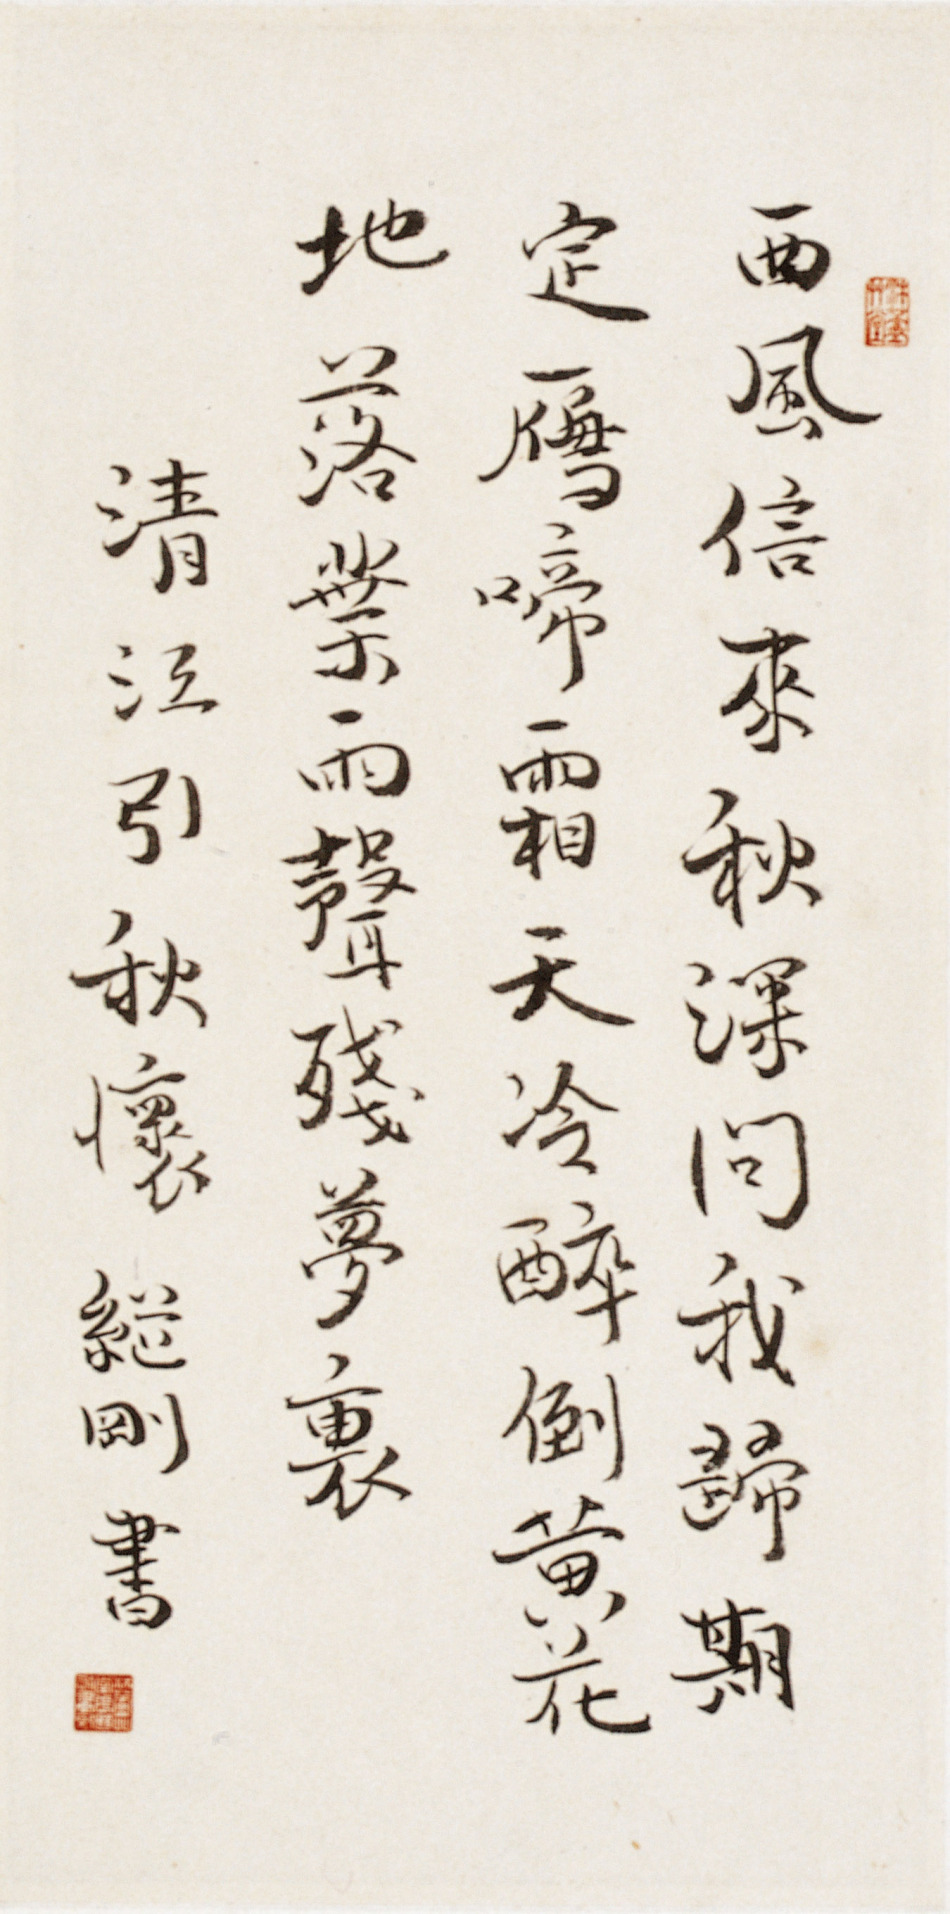 西風信來秋深問我歸期
定雁啼霜天冷醉倒黃花
地落葉雨聲殘夢裏
清江引秋懷 縱剛書